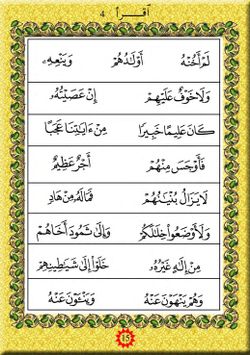 اقرأ 4
لَمْ أَخُنْهُ أَوْلَـٰدُهُمْ وَيَنْعِهِۦ
وَلَا خَوْفٌ عَلَيْهِمْ إِنْ عَصَيْتُهُۥ
كَانَ عَلِيمًا خَبِيرًا مِنْ ءَايَـٰتِنَا عَجَبًا
فَأَوْجَسَ مِنْهُمْ أَجْرٌ عَظِيمٌ
لَا يَزَالُ بُنْيَـٰنُهُمْ فَمَا لَهُۥ مِنْ هَادٍ
وَلَأَوْضَعُوا۟ خِلَـٰلَكُمْ وَإِلَىٰ ثَمُودَ أَخَاهُمْ
مِنْ إِلَـٰهٍ غَيْرُهُۥ خَلَوْا۟ إِلَىٰ شَيَـٰطِينِهِمْ
وَهُمْ يَنْهَوْنَ عَنْهُ وَيَنْـَٔوْنَ عَنْهُ
15